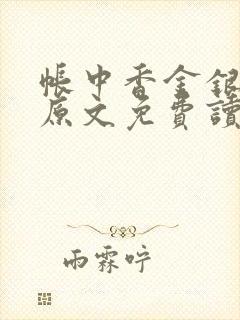 帳中香金銀
原文免費讀
雨霖咛